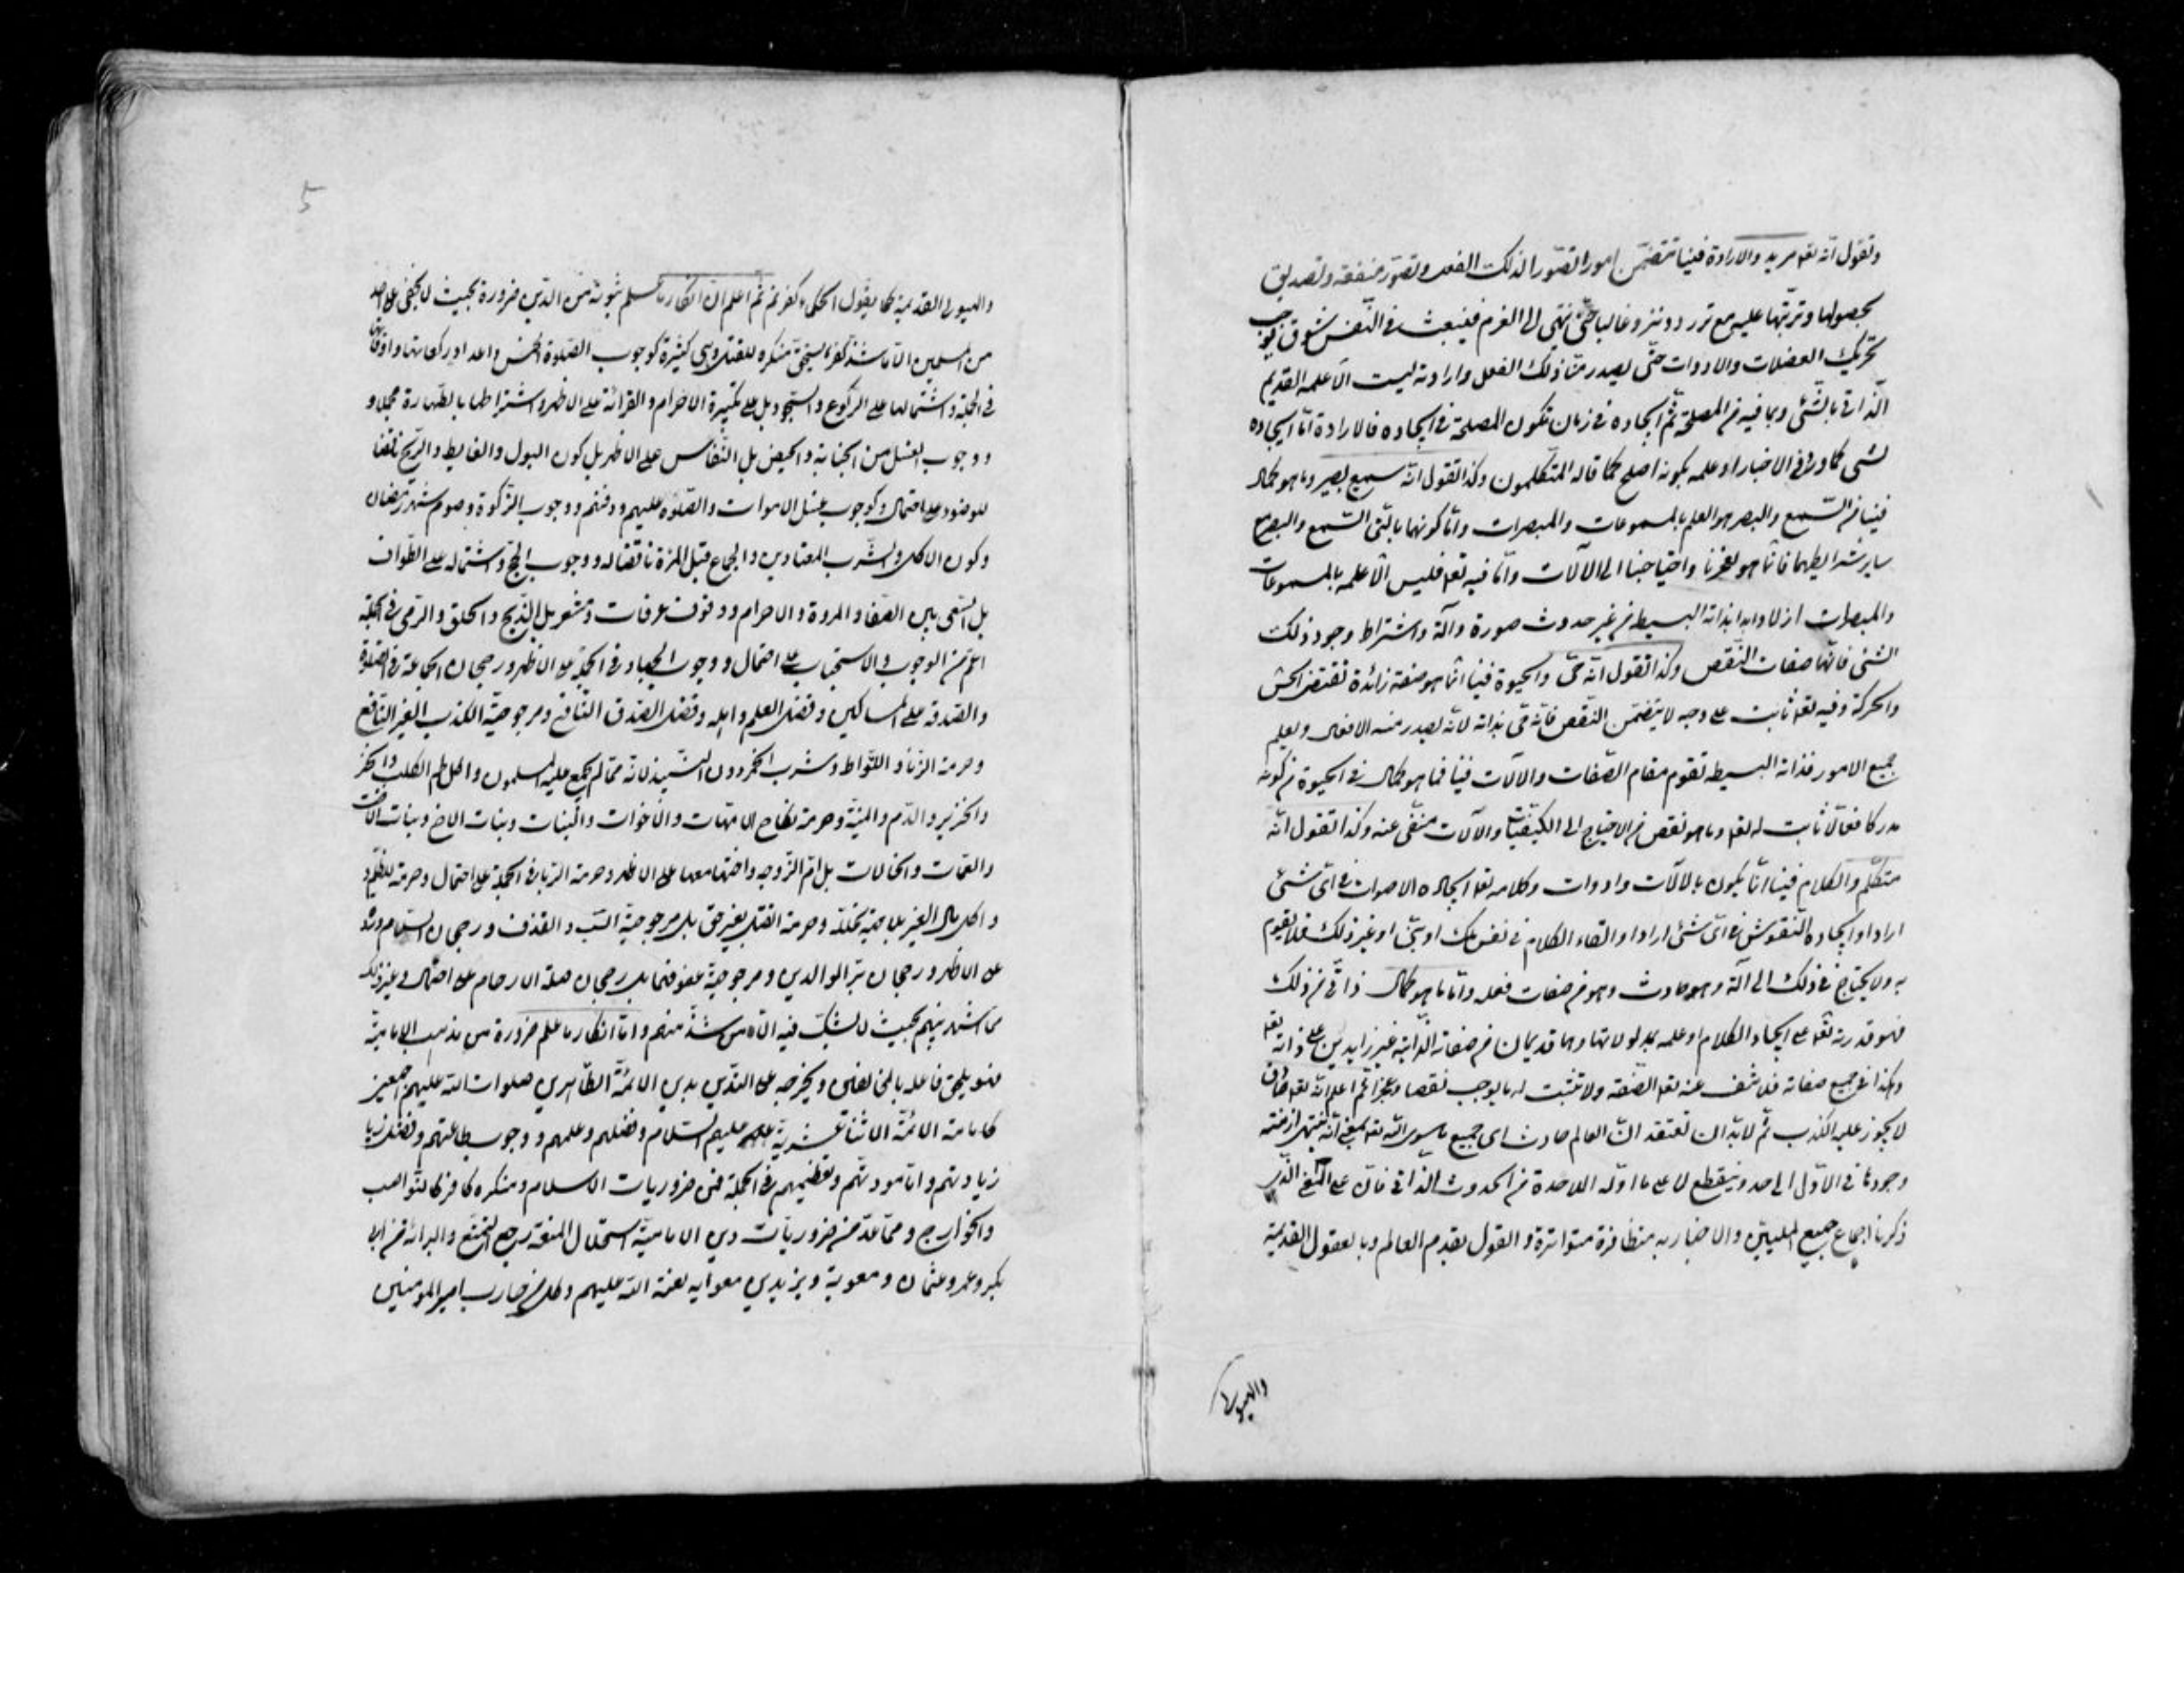 وتقول انه تعه مريد والارادة فينا تتضمن امورا تصور الذلك الفعل وتصور منفعة وتصديق
بحصولها وترتبها عليه مع تردد وتنزو غالبا حتى ينتهي الى العزم فينبعث في النفس شوق يوجب
تحريك العضلات والادوات حتى يصدر منا ذلك الفعل وارادته ليست الا علمه القديم
الذاتي بالشئ وبما فيه من المصلحة ثم ايجاده في زمان تكون المصلحة في ايجاده فالارادة اما ايجاده
لشئ كما ورد في الاخبار او علمه بكونه اصلح كما قاله المتكلمون وكذا تقول انه سميع بصير وما هو كمال
فينا من السمع والبصر هو العلم بالمسموعات والمبصرات واما كونهما بالتي السمع والبصر مع
ساير شرايطهما فانما هو لعجزنا واحتياجنا الى الآلات واما فيه تعه فليس الا علمه بالمسموعات
والمبصرات ازلا وابدا بذاته البسيط من غير حدوث صورة وآلة واشتراط وجود ذلك
الشئ فانها صفات النقص وكذا تقول انه حي والحيوة فينا انما هو صفة زائدة تقتضي الحس
والحركة وفيه تعه ثابت على وجه لا يتضمن النقص فانه حي بذاته لانه يصدر منه الافعال ويعلم
جميع الامور فذاته البسيطة تقوم مقام الصفات والآلات فينا فما هو كمال في الحيوة من كونه
مدركا فعالا ثابت له تعه وما هو نقص من الاحتياج الى الكيفيات والآلات منفي عنه وكذا تقول انه
متكلم والكلام فينا انما يكون بالآلات وادوات وكلامه تعه ايجاده الاصوات في اي شئ
اراد او ايجاده النقوش في اي شئ اراد او القاء الكلام في نفس ملك او نبي او غير ذلك فلا يقوم
به ولا يحتاج في ذلك الى آلة وهو حادث وهو من صفات فعله واما ما هو كمال ذاتي من ذلك
فهو قدرته تعه على ايجاد الكلام او علمه بمدلولاتها وهما قديمان من صفاته الذاتية غير زايدين على ذاته تعه
وهكذا في جميع صفاته فلا تنف عنه تعه الصفة ولا تثبت له ما يوجب نقصا وعجزا ثم اعلم انه تعه صادق
لا يجوز عليه الكذب ثم لا بد ان تعتقد ان العالم حادث اي جميع ما سوى الله تعه بمعنى انه ينتهي ازمنة
وجودها في الاول الى حد وينقطع لا على ما اوله الملاحدة من الحدوث الذاتي فان على المعنى الذي
ذكرنا اجماع جميع المليين والاخبار به متظافرة متواترة والقول بقدم العالم وبالعقول القديمة
والهيولى
5
والهيولى القديمة كما يقول الحكماء كفر ثم اعلم ان انكار ما علم ثبوته من الدين ضرورة بحيث لا يخفى على احد
من المسلمين الا ما شذ كفر يستحق منكره للقتل وهي كثيرة كوجوب الصلوة الخمس واعداد ركعاتها واوقاتها
في الجملة واشتمالها على الركوع والسجود بل على تكبيرة الاحرام والقرائة على الاظهر واشتراطها بالطهارة مجملا و
ووجوب الغسل من الجنابة والحيض بل النفاس على الاظهر بل كون البول والغايط والريح ناقضا
للوضوء على احتمال وكوجوب غسل الاموات والصلوة عليهم ودفنهم ووجوب الزكوة وصوم شهر رمضان
وكون الاكل والشرب المعتادين والجماع قبل المرة ناقضا له ووجوب الحج واشتماله على الطواف
بل السعي بين الصفا والمروة والاحرام ووقوف عرفات ومشعر بل الذبح والحلق والرمي في الجملة
اعم من الوجوب والاستحباب على احتمال ووجوب الجهاد في الجملة على الاظهر ورجحان الجماعة في الصلوة
والصدقة على المساكين وفضل العلم واهله وفضل الصدق النافع ومرجوحية الكذب الغير النافع
وحرمة الزنا واللواط وشرب الخمر دون النبيذ لانه مما لم يجمع عليه المسلمون واكل لحم الكلب
والخنزير والدم والميتة وحرمة نكاح الامهات والاخوات والبنات وبنات الاخ وبنات الاخت
والعمات والخالات بل ام الزوجة واختها معها على الاظهر وحرمة الربا في الجملة على احتمال وحرمة الظلم و
واكل مال الغير بلا جهة محللة وحرمة القتل بغير حق بل مرجوحية السب والقذف ورجحان السلام ورده
على الاظهر ورجحان بر الوالدين ومرجوحية عقوقهما بل رجحان صلة الارحام على احتمال وغير ذلك
مما اشتهر بينهم بحيث لا يشك فيه الا من شذ منهم واما انكار ما علم ضرورة من مذهب الامامية
فهو يلحق فاعله بالمخالفين ويخرجه عن التدين بدين الائمة الطاهرين صلوات الله عليهم اجمعين
كامامة الائمة الاثنا عشرية عليهم السلام وفضلهم وعلمهم ووجوب طاعتهم وفضل زيا
زيارتهم واما مودتهم وتعظيمهم في الجملة فمن ضروريات الاسلام ومنكره كافر كالنواصب
والخوارج ومما عد من ضروريات دين الامامية استحلال المتعة وحج التمتع والبرائة من ابي
بكر وعمر وعثمان ومعوية ويزيد بن معوايه لعنة الله عليهم وكل من حارب امير المومنين